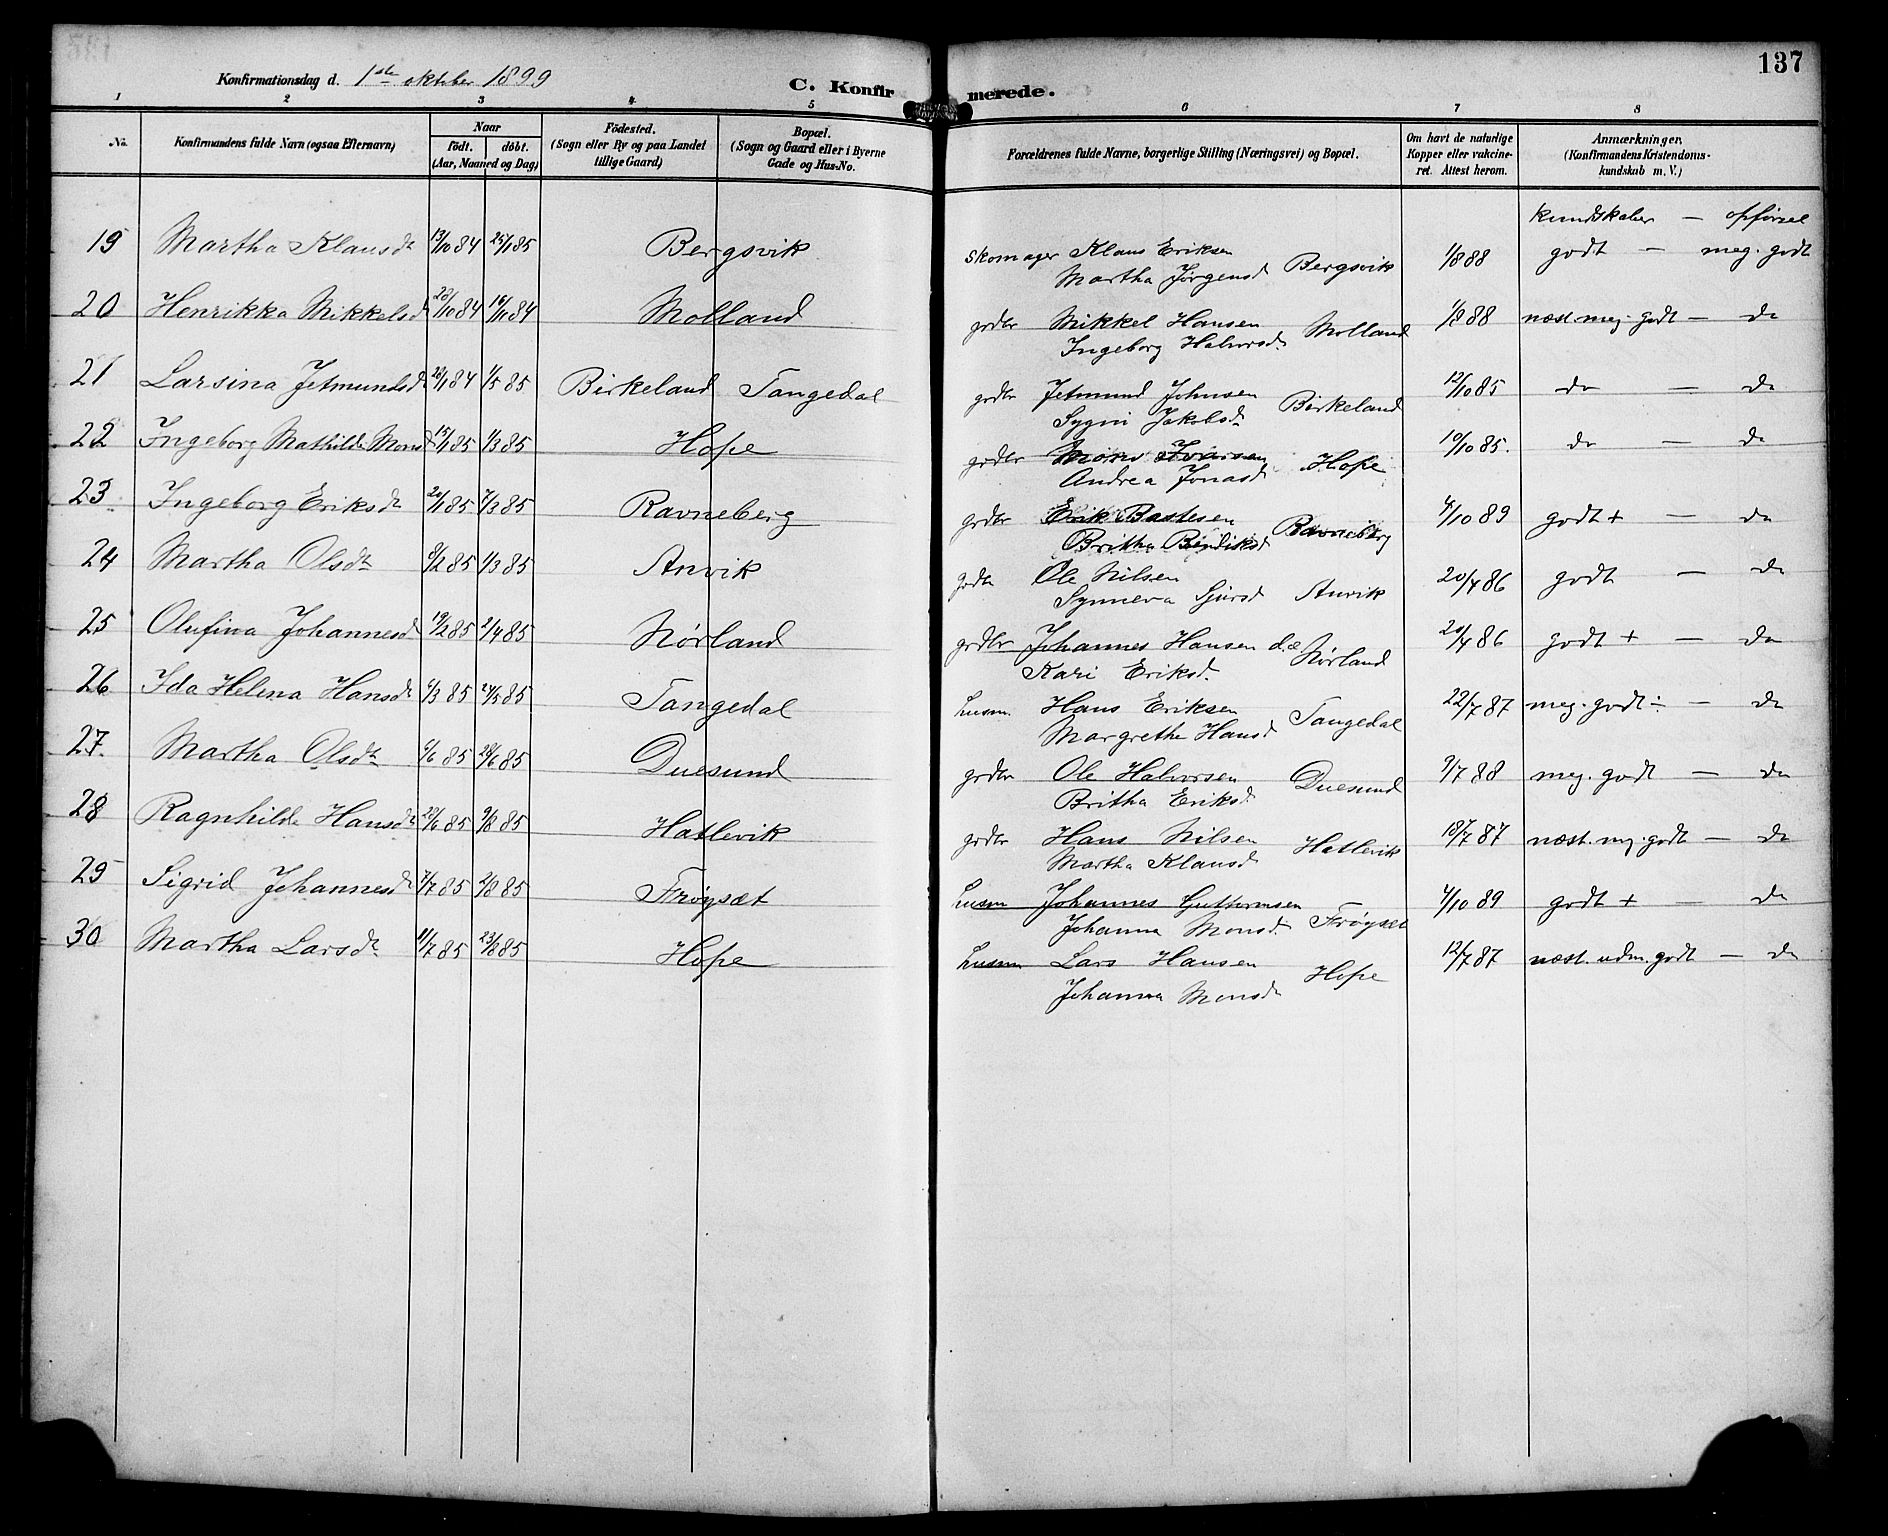 137
Konfirmationsdag d. 1ste oktober 1899
C. Konfirmerede.
1 2 3 4 5 6 7 8
No. Konfirmandens fulde Navn (ogsaa Efternavn) Naar födt. döbt. (Aar, Maaned og Dag) Födested. (Sogn eller By og paa Landet tillige Gaard) Bopæl. (Sogn og Gaard eller i Byerne Gade og Hus-No. Forældrenes fulde Navne, borgerlige Stilling (Næringsvei) og Bopæl. Om havt de naturlige Kopper eller vakcineret. Attest herom. Anmærkninger. (Konfirmandens Kristendomskundskab m. V.)
kundskaber — opførsel
19 Martha Klausdr 13/10 84 25/1 85 Bergsvik Skomager Klaus Eriksen Bergsvik 1/8 88 godt — meg. godt
Martha Jørgensd
20 Henrikka Mikkelsd 28/10 84 16/11 84 Molland grdbr Mikkel Hansen Molland 1/8 88 næst. meg. godt — do
Ingeborg Halvorsd.
21 Larsina Jetmundsd 1/5 85 Birkeland Tangedal grdbr Jetmund Johnsen Birkeland 12/10 85 do — do
Sygni Jakobsdr
22 Ingeborg Mathilde Monsd 15/1 85 1/3 85 Hope grdbr Mons Ivarsen Hope 10/10 85. do — do
Andrea Jonasd
23. Ingeborg Eriksdr 20/1 85 7/3 85 Ravneberg grdbr Erik Bastesen Ravneberg 4/10 89 godt + — do
Britha Bendiksd
24 Martha Olsdr 8/2 85 1/3 85 Anvik grdbr Ole Nilsen Anvik 20/4 86 godt — do
Synneva Sjursd
25 Olufina Johannesd 19/2 85 2/4 85 Nørland grdbr Johannes Hansen d.æ Nørland 20/4 86 godt + — do
Kari Eriksd.
26 Ida Helena Hansdr 6/3 85 27/5 85 Tangedal husm. Hans Eriksen Tangedal 22/7 87 meg. godt ÷ — do
Margrethe Hansd
27. Martha Olsdr 6/6 85 28/6 85 Duesund grdbr Ole Halvorsen Duesund 9/7 88 meg. godt — do
Britha Eriksd.
28 Ragnhilda Hansdr 22/6 85 9/8 85 Hatlevik grdbr Hans Nilsen Hatlevik 18/7 87 næst. mg. godt — do
Martha Klausd
29 Sigrid Johannesd 7/7 85 2/8 85 Frøyset husm Johannes Guttormsen Frøyset 4/10 89 godt + — do
Johanna Monsd.
30 Martha Larsdr 11/7 85 23/8 85 Hope husm Lars Hansen Hope 12/7 87 næst. udm. godt — do
Johanna Monsd